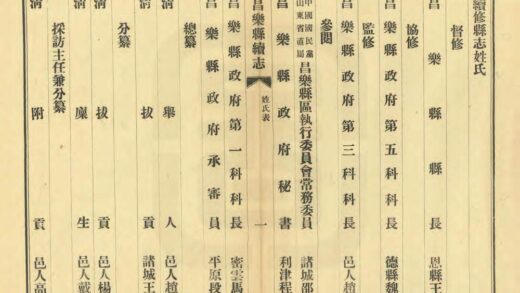 續修縣志姓氏
督修
昌樂縣縣長 恩縣王
協修
昌樂縣政府第五科科長 德縣魏
監修
昌樂縣政府第三科科長 邑人趙
參閱
中國國民黨山東省直屬昌樂縣區執行委員會常務委員 諸城邵
昌樂縣政府秘書 利津程
昌樂縣續志 姓氏表 一
昌樂縣政府第一科科長 密雲馬
昌樂縣政府承審員 平原段
總纂
清舉人 邑人趙
清拔貢 諸城王
分纂
清拔貢 邑人楊
清廩生 邑人戴
採訪主任兼分纂
清附貢 邑人高